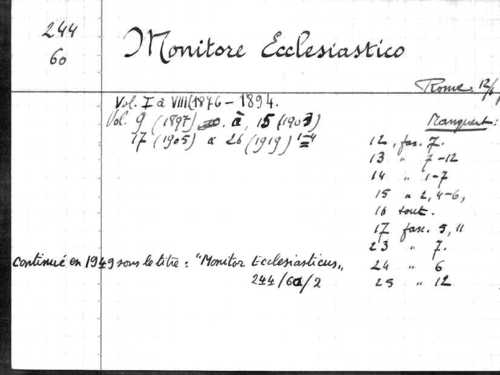 244
60
Monitore Ecclesiastico
Rome. 12/
Vol. I à VIII (1876 - 1894.
Vol. 9 (1897) à 15 (1903)
17 (1905) à 26 (1919) 1-4
Manquent:
12, fas. 7.
13 " 7-12
14 " 1-7
15 " 2, 4-6,
16 tout.
17 fasc. 5, 11
23 " 7.
24 " 6
25 " 12
continué en 1949 sous le titre: "Monitor Ecclesiasticus"
244/60/2